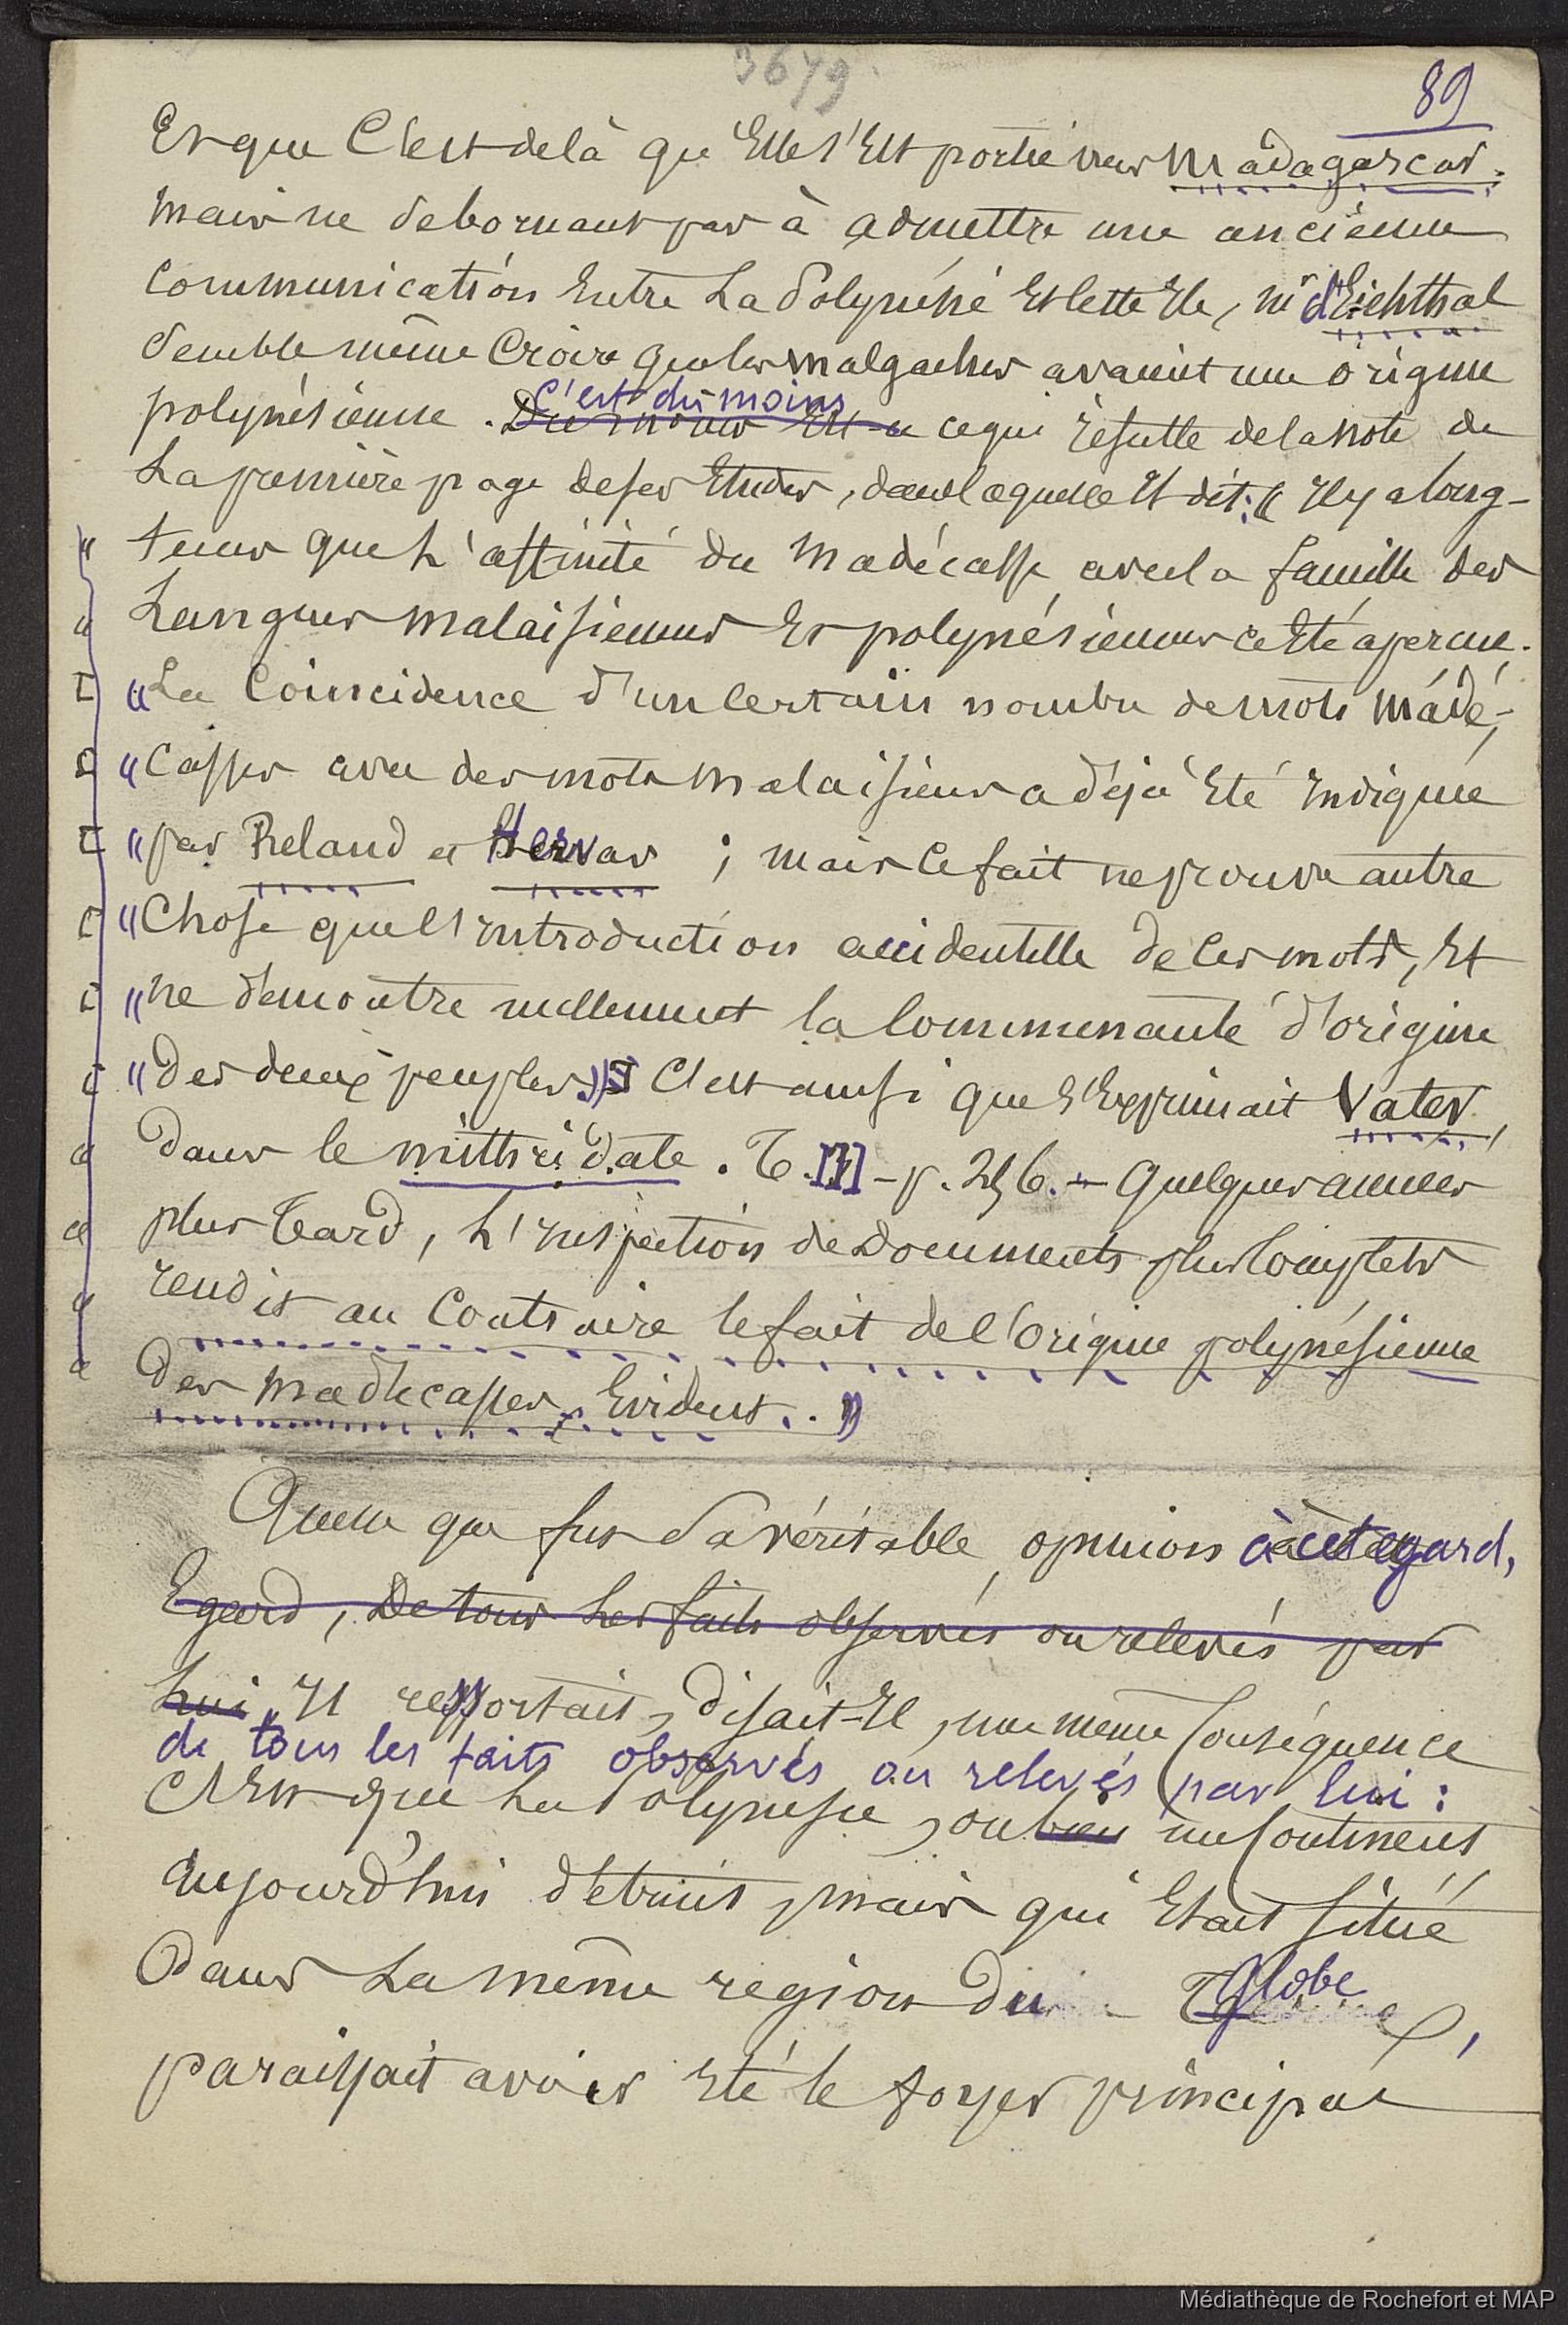 3679
89
Et que C'est de là qu'Elle s'Est portée vers Madagascar.
mais ne se bornant pas à admettre une ancienne
communication Entre La Polynésie Et cette Ile, mr d'Eichthal
semble même Croire que les malgaches avaient une origine
polynésienne. Du moins Est-ce c'est du moins ce qui résulte de la note de
La première page de ses Etudes, dans laquelle Il dit: « Il y a long-
« tems que L'affinité du Madécasse avec la famille des
« Langues malaisiennes Et polynésiennes a Eté aperçue.
« La Coincidence d'un certain nombre de mots Madé-
« casses avec des mots malaisiens a déjà Eté Indiquée
« par Reland et Hervas ; mais ce fait ne prouve autre
« Chose que l'Introduction accidentelle de ces mots, Et
« ne démontre nullement la Communauté d'origine
« des deux peuples.» C'est ainsi que s'Exprimait Vater,
« dans le mithridate. T. III - p. 256. - Quelques années
« plus Tard, L'Inspection de Documents plus Complets
« rendit au Contraire le fait de l'origine polynésienne
« des madécasses, Evident. . »
Quelle que fut sa véritable opinion à cet egard,
Egard, De tous Les faits observés ou relevés par
Lui, Il ressortait, disait-Il, une même Conséquence
de tous les faits observés ou relevés par lui :
C'Est que La Polynésie, ou bien un Continent
aujourd'hui détruit, mais qui Etait situé
Dans La même region du globe,
paraissait avoir Eté le foyer principal
Médiathèque de Rochefort et MAP